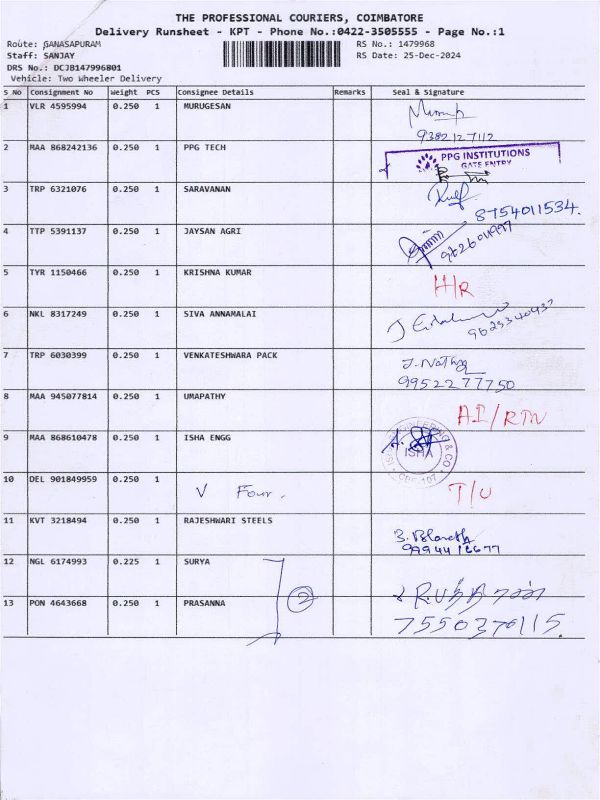 THE PROFESSIONAL COURIERS, COIMBATORE
Delivery Runsheet - KPT - Phone No.:0422-3505555 - Page No.:1
Route: GANASAPURAM RS No.: 1479968
Staff: SANJAY RS Date: 25-Dec-2024
DRS No.: DCJB147996801
Vehicle: Two Wheeler Delivery
S No Consignment No Weight PCS Consignee Details Remarks Seal & Signature
1 VLR 4595994 0.250 1 MURUGESAN
9382127112
2 MAA 868242136 0.250 1 PPG TECH PPG INSTITUTIONS
GATE ENTRY
3 TRP 6321076 0.250 1 SARAVANAN
8754011534.
4 TTP 5391137 0.250 1 JAYSAN AGRI
5 TYR 1150466 0.250 1 KRISHNA KUMAR H/R
6 NKL 8317249 0.250 1 SIVA ANNAMALAI
7 TRP 6030399 0.250 1 VENKATESHWARA PACK
9952277750
8 MAA 945077814 0.250 1 UMAPATHY AI/RTN
9 MAA 868610478 0.250 1 ISHA ENGG ISHA
10 DEL 901849959 0.250 1 V Four. T/U
11 KVT 3218494 0.250 1 RAJESHWARI STEELS
12 NGL 6174993 0.225 1 SURYA 2
13 PON 4643668 0.250 1 PRASANNA
7550370115.